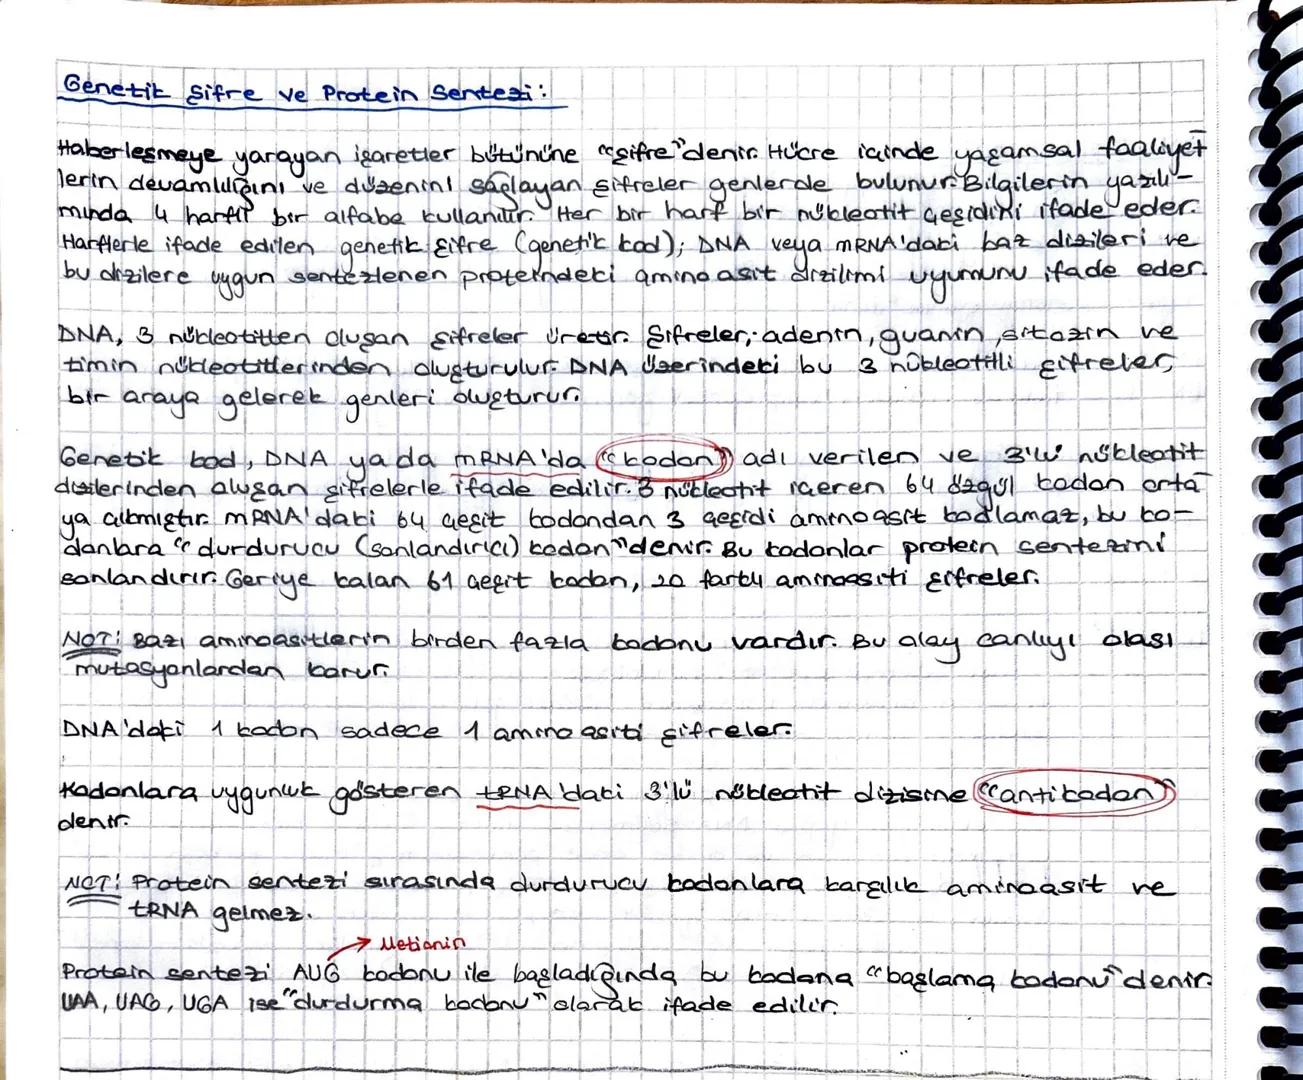 Genetik Şifre ve Protein Sentezi:
Haberleşmeye yarayan işaretler bütününe "şifre" denir. Hücre içinde yaşamsal faaliyet
lerin devamlılığını ve düzenini sağlayan şifreler genlerde bulunur. Bilgilerin yazılı-
mında 4 harfli bir alfabe kullanılır. Her bir harf bir nükleotit çeşidini ifade eder.
Harflerle ifade edilen genetik şifre (genetik kod); DNA veya mRNA'daki baz dizileri ve
bu dizilere uygun sentezlenen proteindeki amino asit dizilimi uyumunu ifade eder.
DNA, 3 nükleotitten oluşan şifreler üretir. Şifreler; adenin, guanin, sitozin ve
timin nükleotitlerinden oluşturulur. DNA üzerindeki bu 3 nükleotitli şifreler,
bir araya gelerek genleri oluşturur.
Genetik kod, DNA ya da mRNA'da "kodon" adı verilen ve 3'lü nükleotit
dizilerinden oluşan şifrelerle ifade edilir. 3 nükleotit içeren 64 özgül kodon orta
ya çıkmıştır. mRNA'daki 64 çeşit kodondan 3 çeşidi aminoasit kodlamaz, bu ko-
donlara "durdurucu (sonlandırıcı) kodon" denir. Bu kodonlar protein sentezini
sonlandırır. Geriye kalan 61 çeşit kodon, 20 farklı aminoasiti şifreler.
NOT: Bazı aminoasitlerin birden fazla kodonu vardır. Bu olay canlıyı olası
mutasyonlardan korur.
DNA'daki 1 kodon sadece 1 amino asiti şifreler.
Kodonlara uygunluk gösteren tRNA'daki 3'lü nükleotit dizisine "antikodon"
denir.
NOT: Protein sentezi sırasında durdurucu kodonlara karşılık aminoasit ve
tRNA gelmez.
→ Metionin
Protein sentezi AUG kodonu ile başladığında bu kodona "başlama kodonu" denir.
UAA, UAG, UGA ise "durdurma kodonu" olarak ifade edilir.